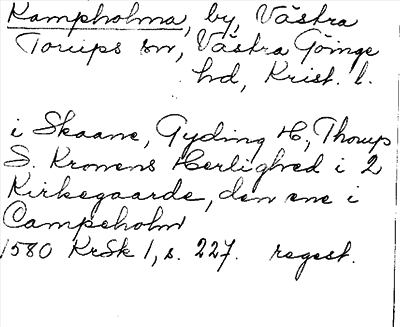 Kampholma, by, Västra
Torups sn, Västra Göinge
hd, Krist. l.
i Skaane, Gyding H., Thorup
S. Kronens Herlighed i 2
Kirkegaarde, den ene i
Campeholm
1580 KrSk 1, s. 227. regest.